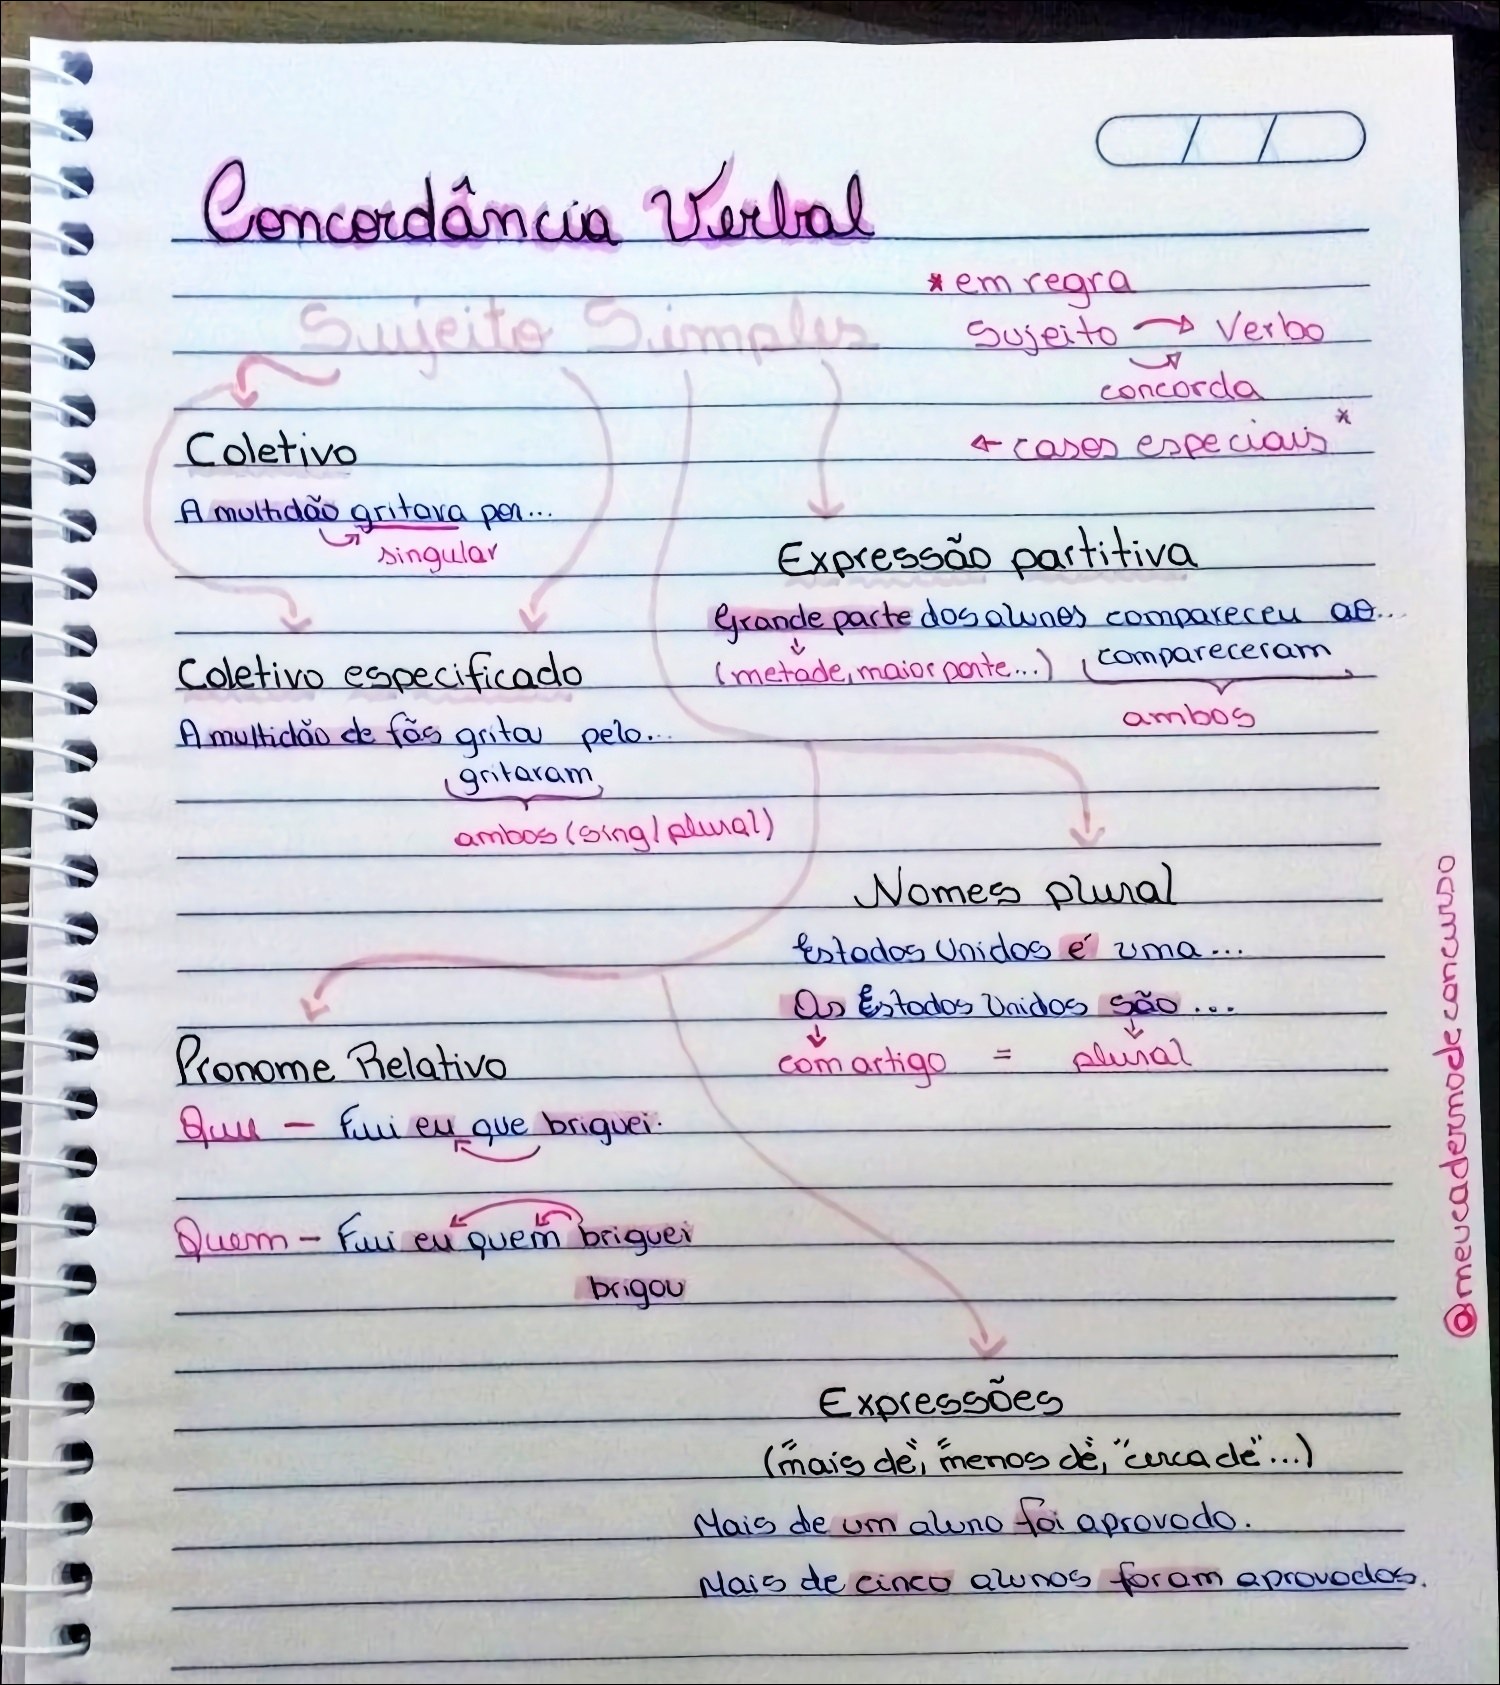 Concordância Verbal
* em regra
Sujeito Simples
Sujeito → Verbo
concorda
← casos especiais *
Coletivo
A multidão gritava por...
singular
Expressão partitiva
Grande parte dos alunos compareceu ao...
(metade, maior parte...) compareceram
ambos
Coletivo especificado
A multidão de fãs gritou pelo...
gritaram
ambos (sing/plural)
Nomes plural
Estados Unidos é uma...
Os Estados Unidos são...
com artigo = plural
Pronome Relativo
Que — Fui eu que briguei.
Quem — Fui eu quem briguei
brigou
Expressões
("mais de", "menos de", "cerca de"...)
Mais de um aluno foi aprovado.
Mais de cinco alunos foram aprovados.
@meucadernodeconcurso